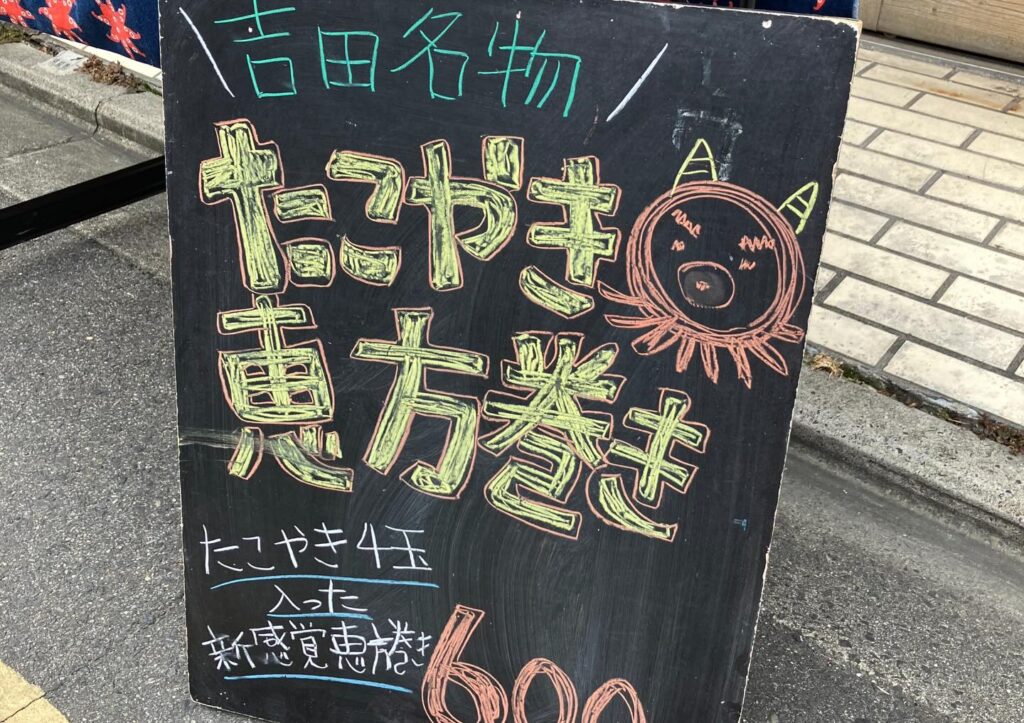 \吉田名物/
たこやき
恵方巻き
たこやき4玉
入った
新感覚恵方巻き
600